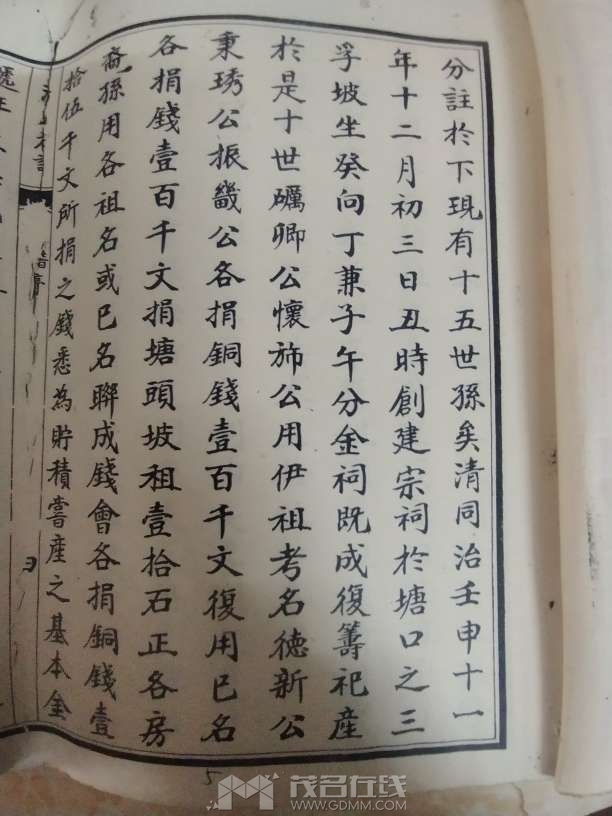 分註於下現有十五世孫矣清同治壬申十一
年十二月初三日丑時創建宗祠於塘口之三
孚坡坐癸向丁兼子午分金祠既成復籌祀產
於是十世礪卿公懷斾公用伊祖考名德新公
秉琇公振畿公各捐銅錢壹百千文復用已名
各捐錢壹百千文捐塘頭坡租壹拾石正各房
裔孫用各祖名或已名聯成錢會各捐銅錢壹
拾伍千文所捐之錢悉為貯積嘗產之基本金
5
茂名在线
WWW.GDMM.COM